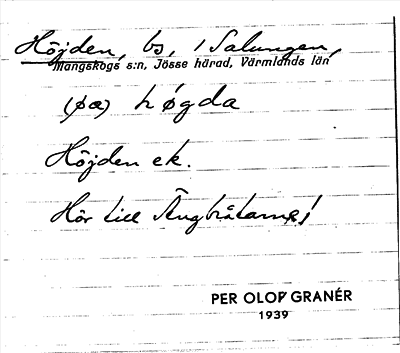 Höjden, bs, i Salungen,
Mangskogs s:n, Jösse härad, Värmlands län
(på) högda
Höjden ek.
Hör till
PER OLOF GRANÉR
1939